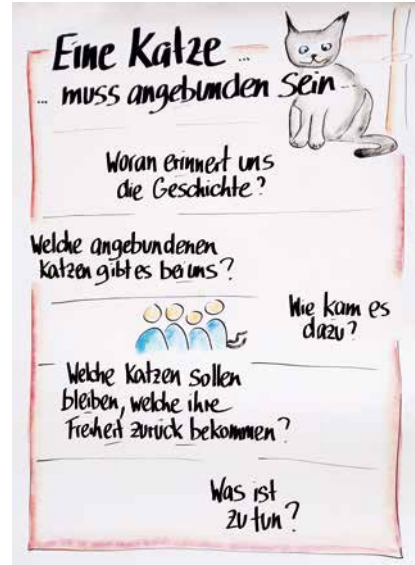 Eine Katze ...
... muss angebunden sein ...
Woran erinnert uns
die Geschichte?
Welche angebundenen
Katzen gibt es bei uns?
Wie kam es
dazu?
Welche Katzen sollen
bleiben, welche ihre
Freiheit zurück bekommen?
Was ist
zu tun?